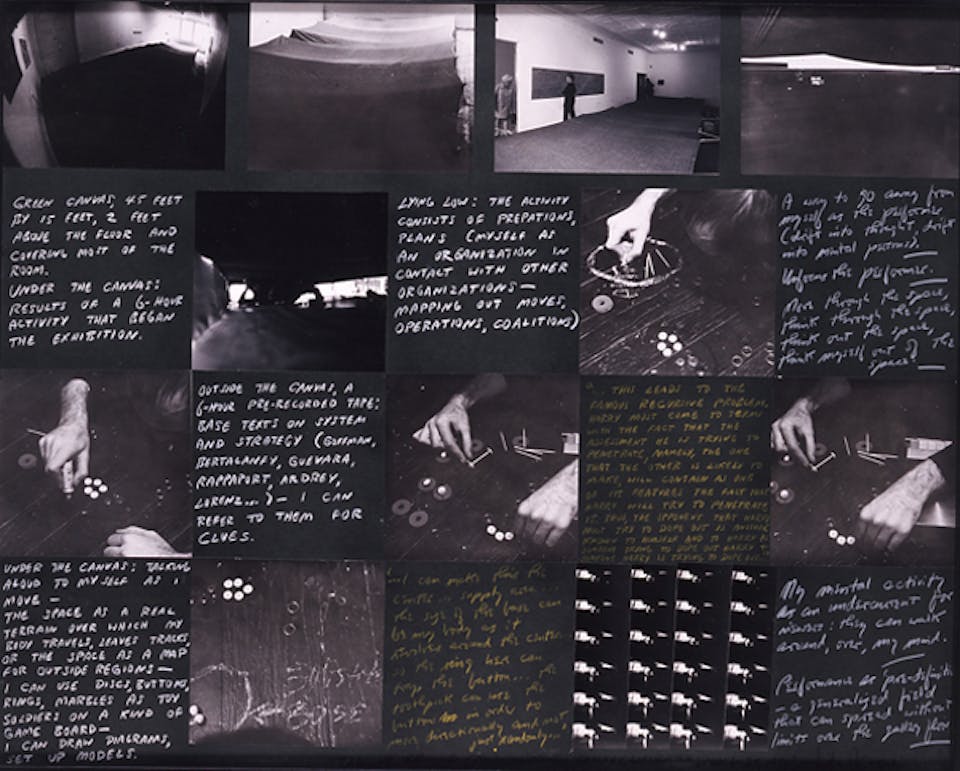 GREEN CANVAS, 45 FEET
BY 15 FEET, 2 FEET
ABOVE THE FLOOR AND
COVERING MOST OF THE
ROOM.
UNDER THE CANVAS:
RESULTS OF A 6-HOUR
ACTIVITY THAT BEGAN
THE EXHIBITION.
LYING LOW: THE ACTIVITY
CONSISTS OF PREPATIONS,
PLANS (MYSELF AS
AN ORGANIZATION IN
CONTACT WITH OTHER
ORGANIZATIONS—
MAPPING OUT MOVES,
OPERATIONS, COALITIONS)
A way to go away from
myself as the performer
(drift into thought, drift
into mental positions).
the performer.
Move through the space,
think through the space,
think out the space,
think myself out of the
space.
OUTSIDE THE CANVAS, A
6-HOUR PRE-RECORDED TAPE:
BASE TEXTS ON SYSTEM
AND STRATEGY (GOFFMAN,
BERTALANFY, GUEVARA,
RAPPAPORT, ARDREY,
LORENZ...) — I CAN
REFER TO THEM FOR
CLUES.
"... THIS LEADS TO THE
FAMOUS RECURSIVE PROBLEM,
HARRY MUST COME TO TERMS
WITH THE FACT THAT THE
ASSESSMENT HE IS TRYING TO
PENETRATE, NAMELY, THE ONE
THAT THE OTHER IS LIKELY TO
MAKE, WILL CONTAIN AS ONE
OF ITS FEATURES THE FACT THAT
HARRY WILL TRY TO PENETRATE
IT. THUS, THE OPPONENT THAT HARRY
MUST TRY TO DOPE OUT IS ANOTHER
UNDER THE CANVAS: TALKING
ALOUD TO MYSELF AS I
MOVE —
THE SPACE AS A REAL
TERRAIN OVER WHICH MY
BODY TRAVELS, LEAVES TRACKS,
OR THE SPACE AS A MAP
FOR OUTSIDE REGIONS—
I CAN USE DISCS, BUTTONS,
RINGS, MARBLES AS TOY
SOLDIERS ON A KIND OF
GAME BOARD—
I CAN DRAW DIAGRAMS,
SET UP MODELS.
...I can make this the
supply area...
the size of the base can
be my body as it
revolves around the
so the ring here can
the button... the
toothpick can use the
button in order to
move directionally and not
just randomly...
My mental activity
as an undercurrent for
viewers: they can walk
around, over, my mind.
Performance as pre-definition
— a generalized field
that can spread without
limits over the gallery floor